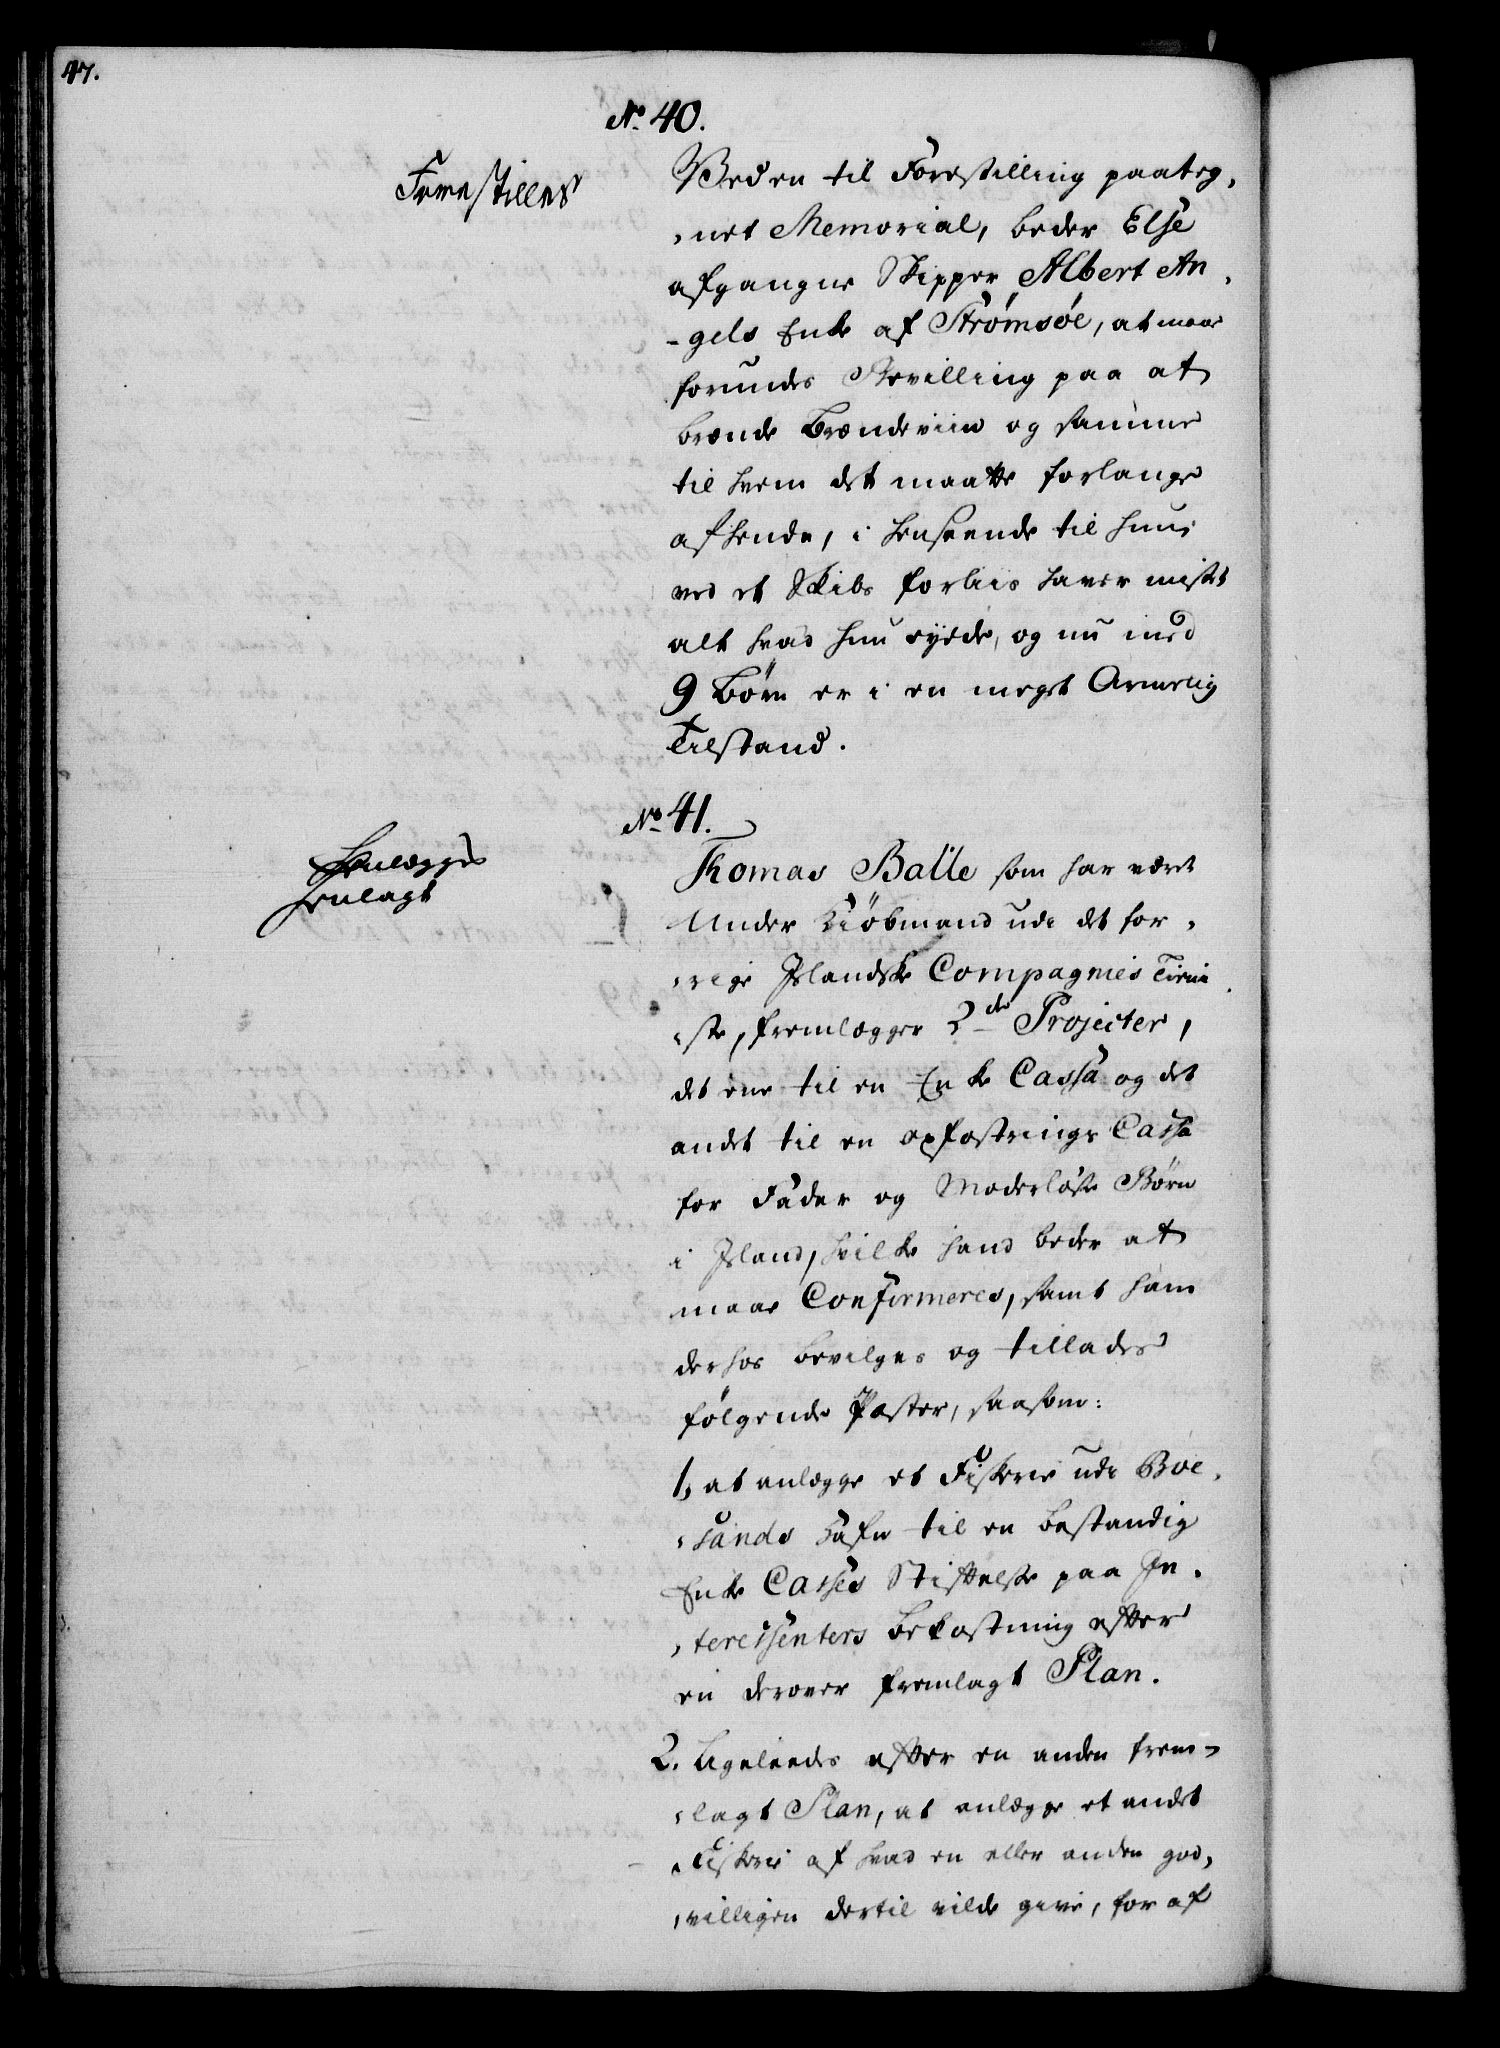 47.
No. 40.
Forestilles
Ved en til Forestilling paateg,
,net Memorial, beder Else
afgangne Skipper Albert An,
-gels Enke af Strømsøe, at maae
forundes Bevilling paa at
brænde Brændeviin og samme
til hvem det maatte forlange
afhende, i henseende til hun
ved et Skibs forliis haver mistet
alt hvad hun eyede, og nu med
9 Børn er i en meget Armelig
Tilstand.
No. 41.
Henlægges
henlagt
Thomas Balle som har været
Under Kiøbmand udi det for,
,rige Islandske Compagnies Tieni
,ste, fremlægger 2de Projecter,
det ene til en Enke Cassa og det
andet til en opfostrings Cassa
for Fader og Moderløse Børn
i Island, hvilke hand beder at
maae Confirmeres, samt ham
derhos bevilges og tillades
følgende Poster, saasom:
1, at anlægge et Fiskerie udi Boe,
,sands Hafn til en bestandig
Enke Casses Stiftelse paa In,
,teressenters bekostning efter
en derover fremlagt Plan.
2. Ligeleedes efter en anden frem-
,lagt Plan, at anlægge et andet
Fiskerie af hvad en eller anden god,
,villigen dertil vilde give, for af